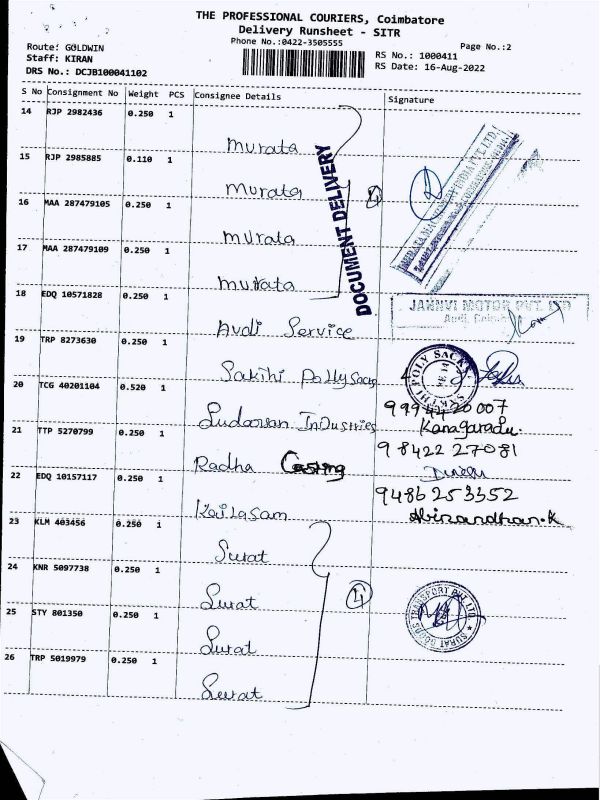 THE PROFESSIONAL COURIERS, Coimbatore
Delivery Runsheet - SITR
Phone No.:0422-3505555
Page No.:2
Route: GOLDWIN
Staff: KIRAN
DRS No.: DCJB100041102
RS No.: 1000411
RS Date: 16-Aug-2022
S No Consignment No Weight PCS Consignee Details Signature
14 RJP 2982436 0.250 1
murata
15 RJP 2985885 0.110 1
murata
16 MAA 287479105 0.250 1
murata
17 MAA 287479109 0.250 1
murata
DOCUMENT DELIVERY
4
18 EDQ 10571828 0.250 1
Audi Service
JAHNVI MOTOR PVT. LTD
Audi, Coimb
19 TRP 8273630 0.250 1
Sakthi Pollysacs
SAKTHI POLY SACKS
20 TCG 40201104 0.520 1
Sudarsan Industries
9994420007
Kanagaradu.
21 TTP 5270799 0.250 1
Radha Casting
9842227081
22 EDQ 10157117 0.250 1
Kailasam
9486253352
Abinandhan.K
23 KLM 403456 0.250 1
Surat
24 KNR 5097738 0.250 1
Surat
4
25 STY 801350 0.250 1
Surat
SURAT GOODS TRANSPORT PVT LTD
26 TRP 5019979 0.250 1
Surat